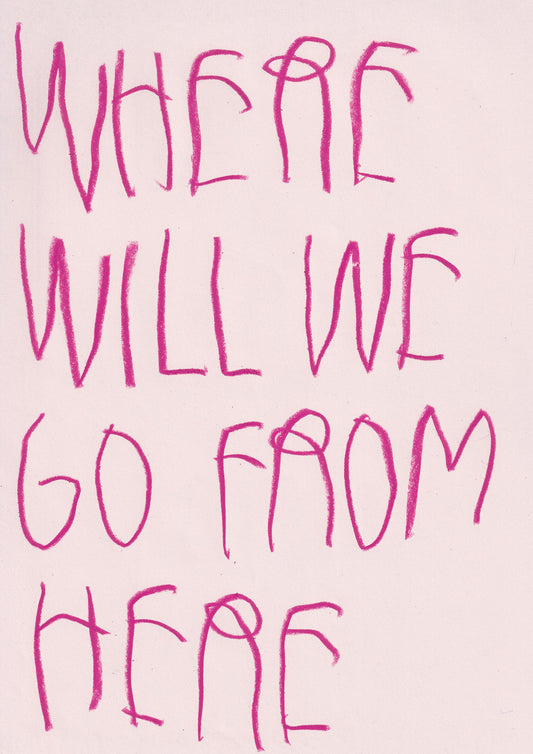 WHERE
WILL WE
GO FROM
HERE